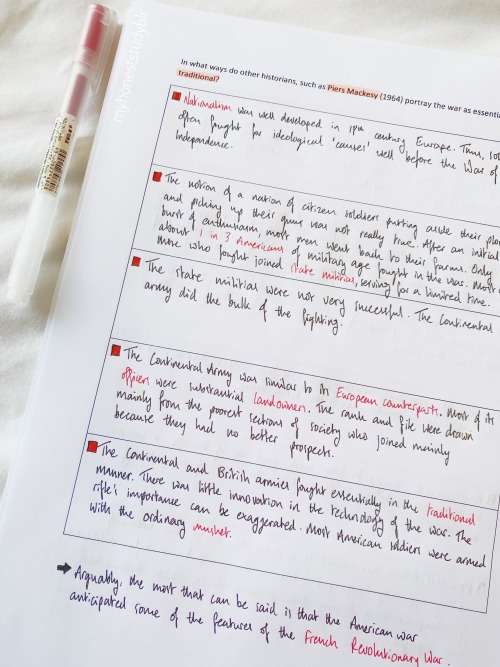 myhoneststudyblr
In what ways do other historians, such as Piers Mackesy (1964) portray the war as essentia
traditional?
Nationalism was well developed in 18th century Europe. Thus,
often fought for ideological 'causes' well before the War of
Independence.
The notion of a nation of citizen soldiers putting aside their
and picking up their guns was not really true. After an initial
burst of enthusiasm, most men went back to their farms. Only
about 1 in 3 Americans of military age fought in the war. Most
those who fought joined state militias, serving for a limited time.
The state militias were not very successful. The Continental
army did the bulk of the fighting.
The Continental Army was similar to its European counterparts. Most of its
officers were substantial landowners. The rank and file were drawn
mainly from the poorest sections of society who joined mainly
because they had no better prospects.
The Continental and British armies fought essentially in the traditional
manner. There was little innovation in the technology of the war. The
rifle's importance can be exaggerated. Most American soldiers were armed
with the ordinary musket.
Arguably, the most that can be said is that the American war
anticipated some of the features of the French Revolutionary War.